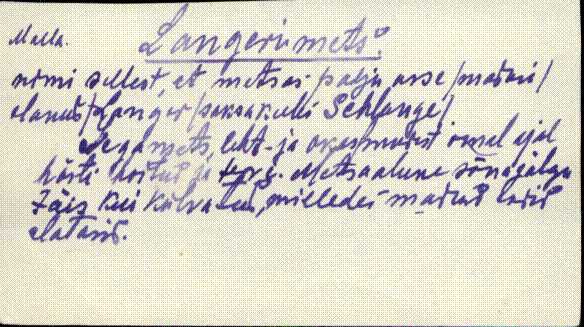 Malla.
Langeri mets.
nimi sellest, et metsas palju usse /madusi/
olanud /Langer/ saksakeeli Schlange/
Segamets, leht- ja okaspuudest omal ajal
hästi hoitud ja korg. Metsaalune sõnajalgu
täis kui külvatud, milledes maduel
elasid.